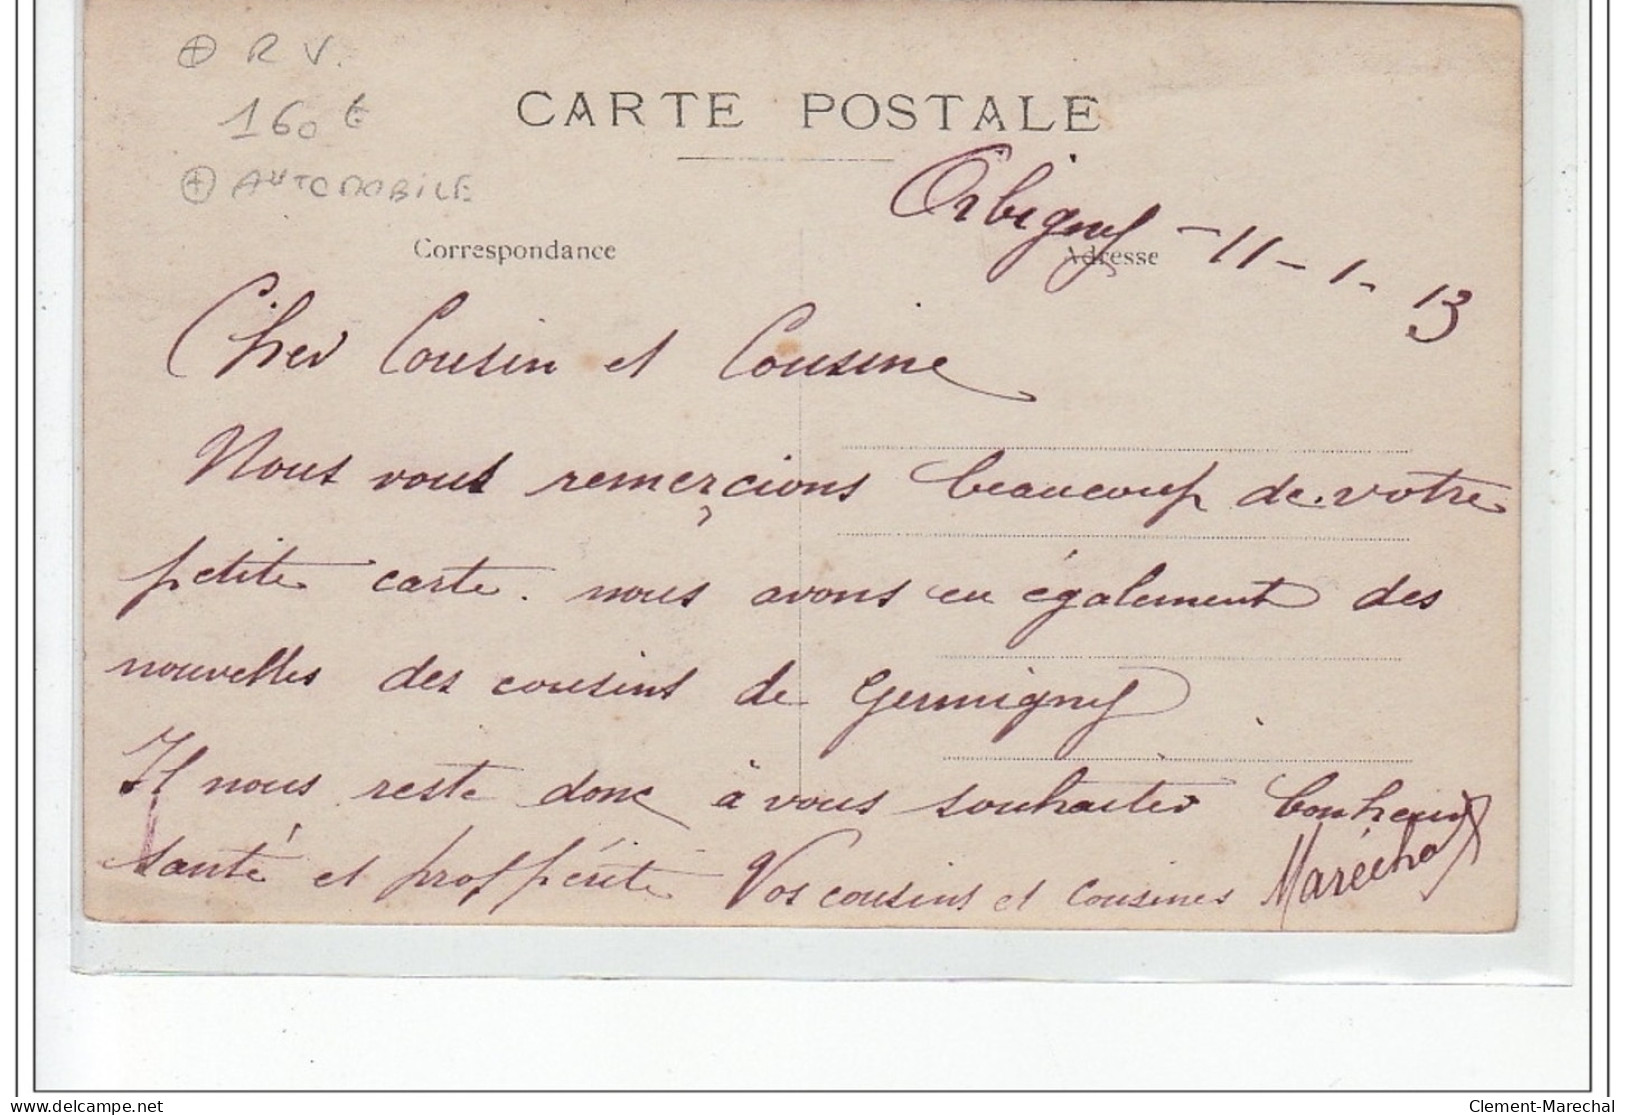 R V.
160 €
AUTOMOBILE
CARTE POSTALE
Correspondance
Adresse
Orbigny - 11 - 1 - 13
Cher Cousin et Cousine
Nous vous remerçions beaucoup de votre
petite carte. nous avons eu également des
nouvelles des cousins de Germigny
Il nous reste donc à vous souhaiter bonheur
santé et prospérité Vos cousins et cousines Maréchal
delcampe.net
Clement-Marechal